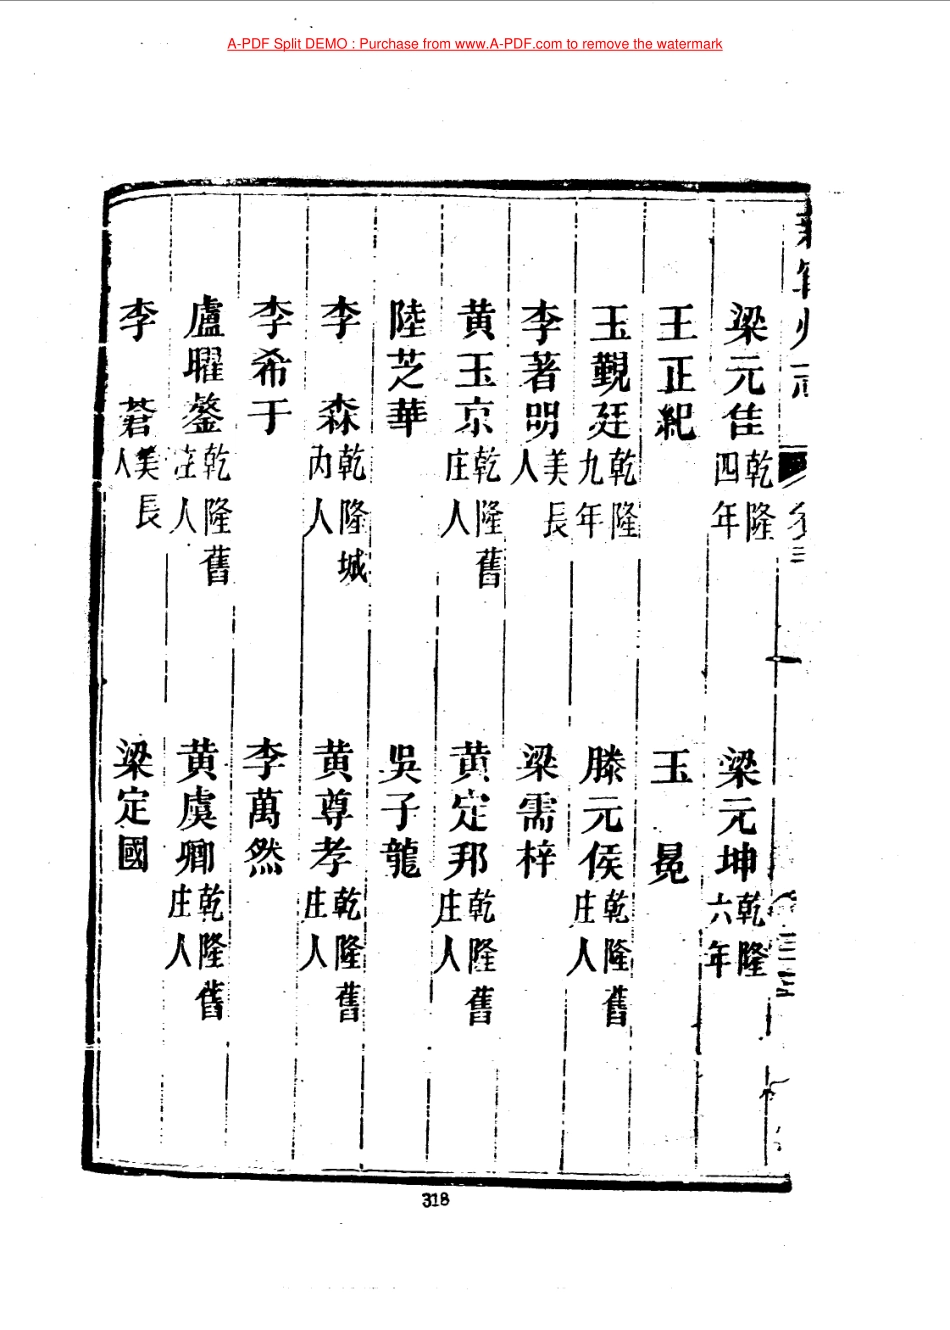 A-PDF Split DEMO : Purchase from www.A-PDF.com to remove the watermark
梁元佳 乾隆四年 梁元坤 乾隆六年
王正紀 玉冕
玉覲廷 乾隆九年 滕元侯 乾隆舊庄人
李著明 美長人 梁需梓
黄玉京 乾隆舊庄人 黄定邦 乾隆舊庄人
陸芝華 吳子龍
李森 乾隆城内人 黄尊孝 乾隆舊庄人
李希于 李萬然
盧曜鎣 乾隆舊庄人 黄虞卿 乾隆舊庄人
李蒼 美長人 梁定國
318